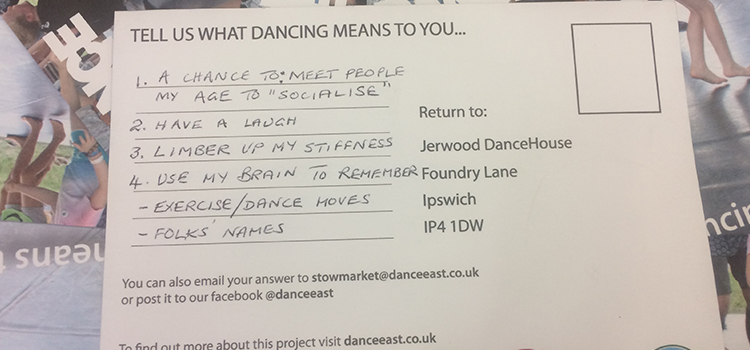 TELL US WHAT DANCING MEANS TO YOU...
1. A CHANCE TO: MEET PEOPLE
MY AGE TO "SOCIALISE"
2. HAVE A LAUGH
3. LIMBER UP MY STIFFNESS
4. USE MY BRAIN TO REMEMBER
- EXERCISE/DANCE MOVES
- FOLKS' NAMES
Return to:
Jerwood DanceHouse
Foundry Lane
Ipswich
IP4 1DW
You can also email your answer to stowmarket@danceeast.co.uk
or post it to our facebook @danceeast
To find out more about this project visit danceeast.co.uk
means